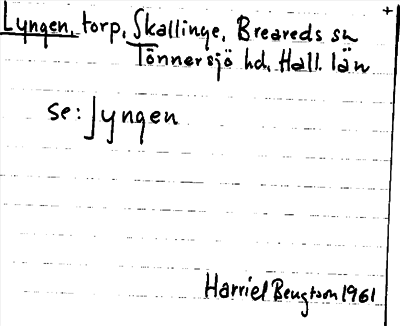 Lyngen, torp, Skallinge, Breareds sn
Tönnersjö hd, Hall. län
se: Jyngen
Harriet Bengtson 1961